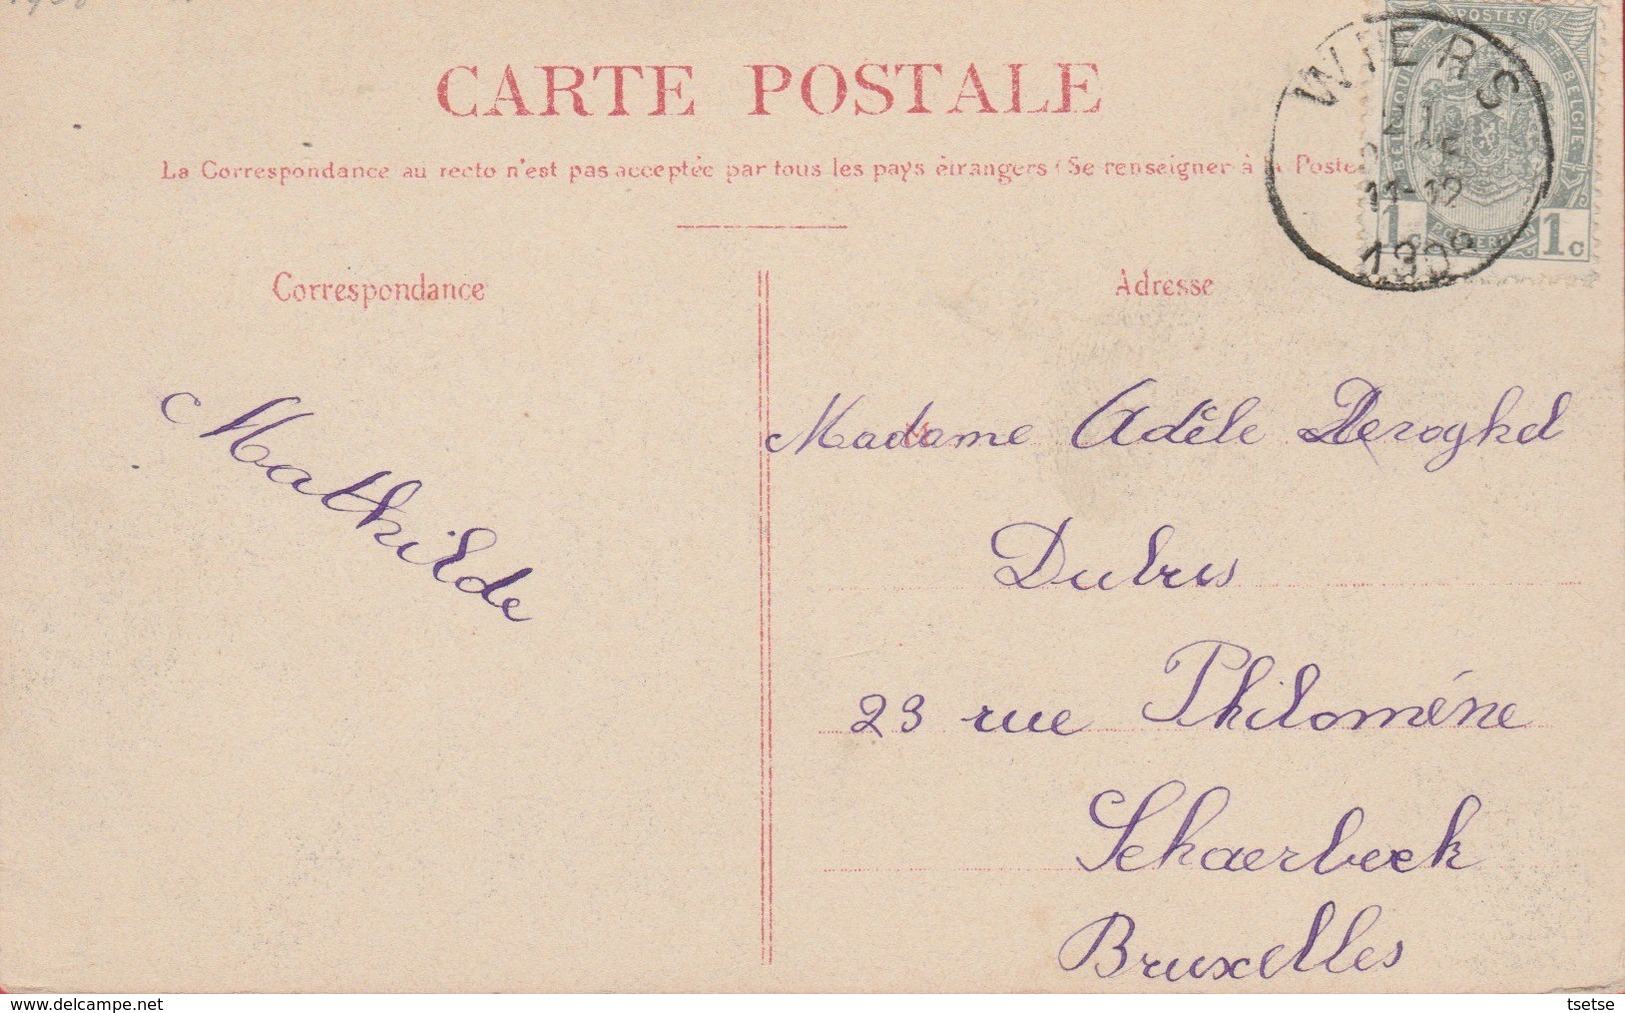 CARTE POSTALE
La Correspondance au recto n'est pas acceptée par tous les pays étrangers (Se renseigner à la Poste
WIERS
11-12
POSTES
BELGIE
1c 1c
Correspondance
Adresse
Mathilde
Madame Adèle
Dubrus
23 rue Philomène
Schaerbeek
Bruxelles
delcampe.net
tsetse